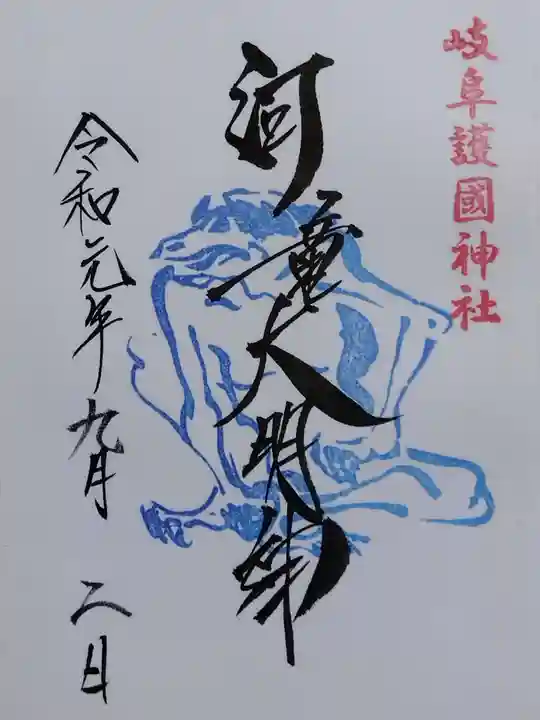 岐阜護國神社
河童大明神
令和元年九月二日